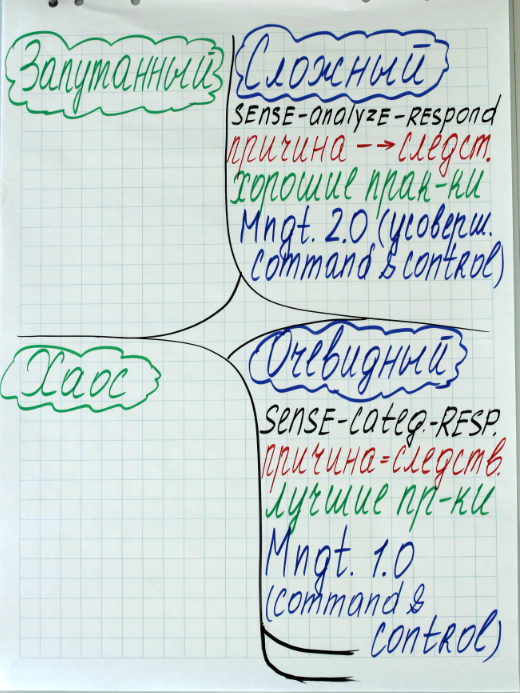 Запутанный
Сложный
SENSE-analyzE-RESpond
причина → следст.
хорошие прак-ки
Mngt. 2.0 (усоверш.
command & control)
Хаос
Очевидный
SENSE-categ.-RESP.
причина = следств.
лучшие пр-ки
Mngt. 1.0
(command &
control)